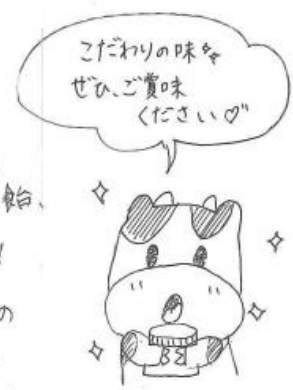 こだわりの味
ぜひ、ご賞味
ください♡"
飴、
!
の